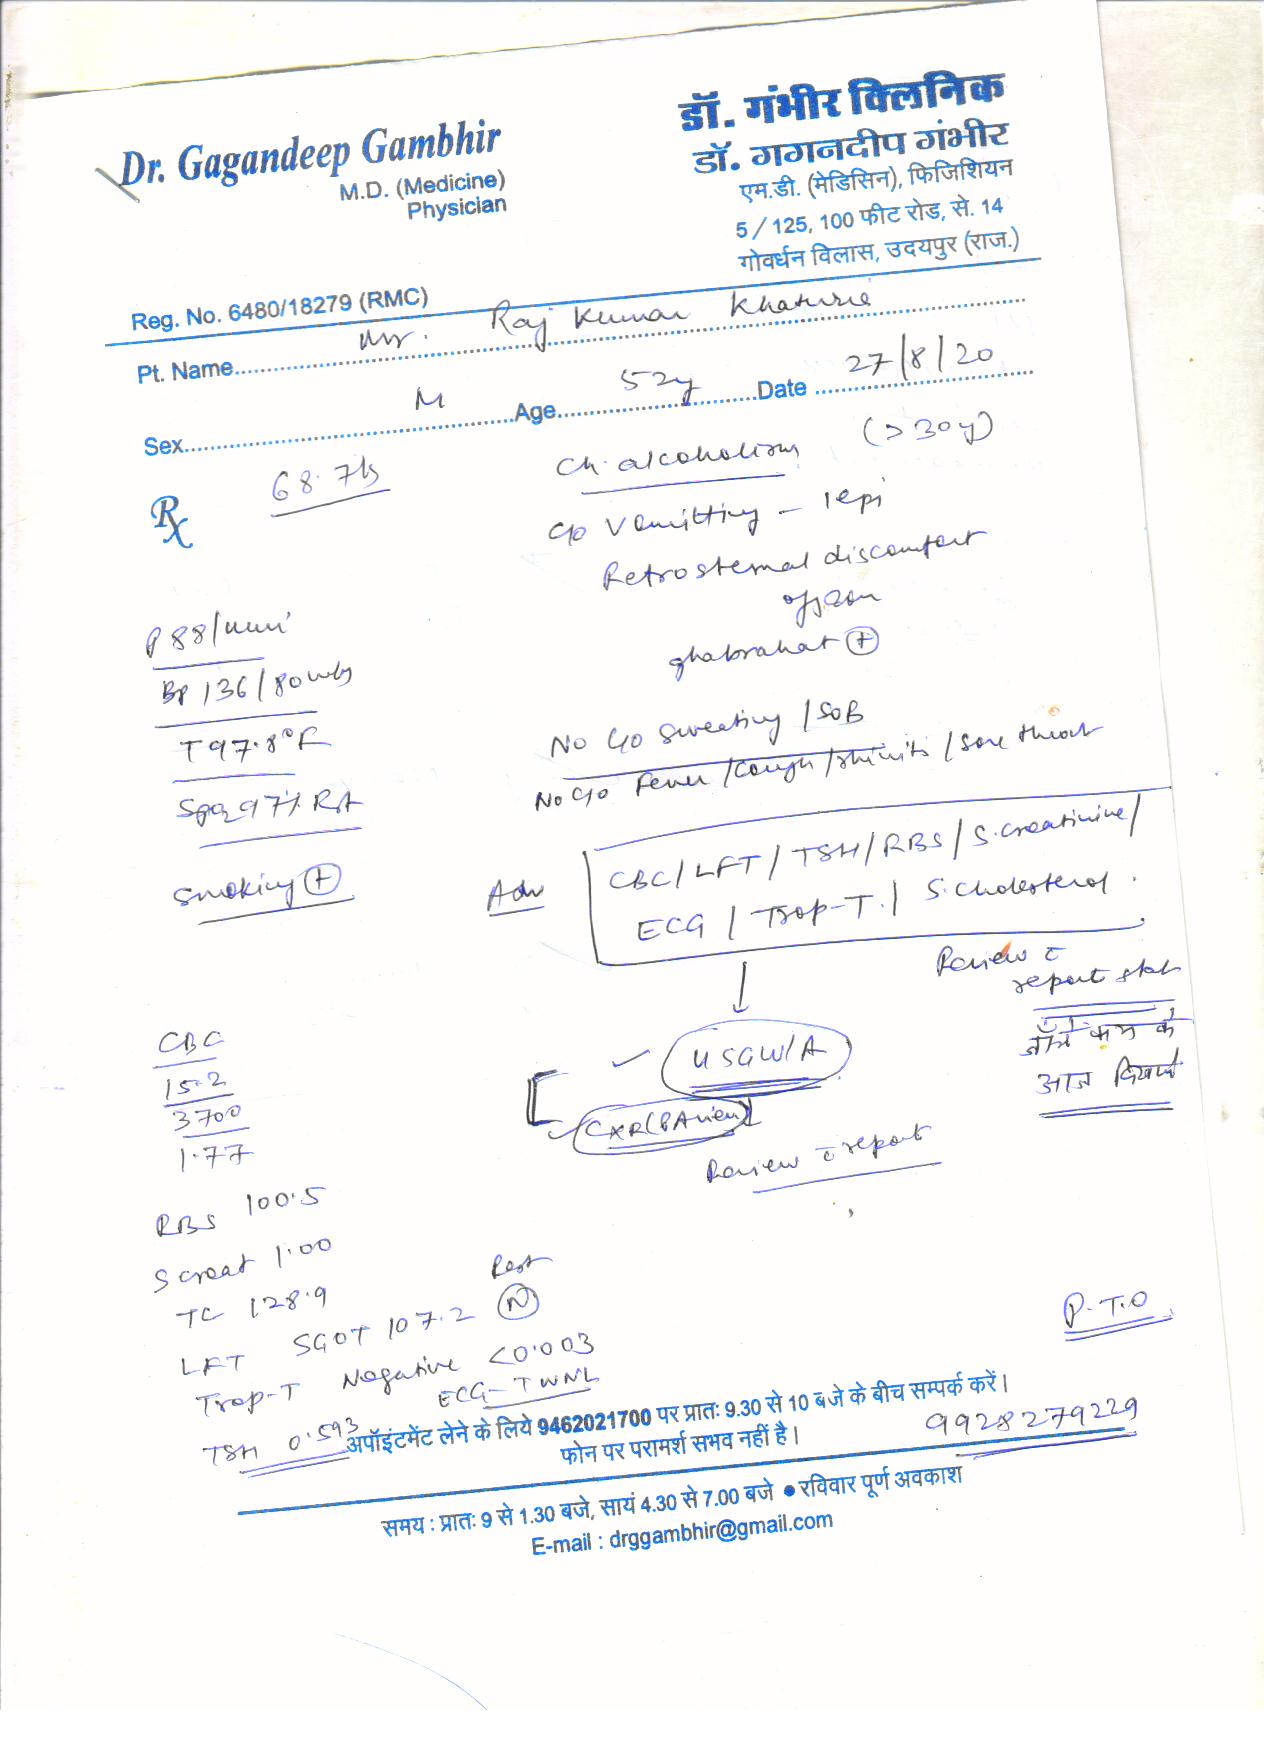 Dr. Gagandeep Gambhir
M.D. (Medicine)
Physician
डॉ. गंभीर क्लिनिक
डॉ. गगनदीप गंभीर
एम.डी. (मेडिसिन), फिजिशियन
5 / 125, 100 फीट रोड, से. 14
गोवर्धन विलास, उदयपुर (राज.)
Reg. No. 6480/18279 (RMC)
Pt. Name Mr. Raj Kumar
Sex M Age 52y Date 27/8/20
Rx 68.7
Ch. alcoholism (>30y)
C/o Vomitting - 1 epi
Retrosternal discomfort
ghabrahat +
P 88/min
BP 136/80
T 97.8°F
SpO2 97% RA
Smoking +
No C/o Sweating / SOB
No C/o Fever / Cough / rhinitis / Sore throat
Adv CBC / LFT / TSH / RBS / S. Creatinine /
ECG / Trop-T / S. Cholesterol.
Review c̄
report stat
आज
USG W/A
CXR (PA view)
Review c̄ report
CBC
15.2
3700
1.77
RBS 100.5
S creat 1.00
TC 128.9
LFT SGOT 107.2 Rest N
Trop-T Negative <0.003
ECG - TWNL
TSH 0.593
P.T.O
अपॉइंटमेंट लेने के लिये 9462021700 पर प्रातः 9.30 से 10 बजे के बीच सम्पर्क करें।
फोन पर परामर्श सभव नहीं है।
9928279229
समय : प्रातः 9 से 1.30 बजे, सायं 4.30 से 7.00 बजे ● रविवार पूर्ण अवकाश
E-mail : drggambhir@gmail.com